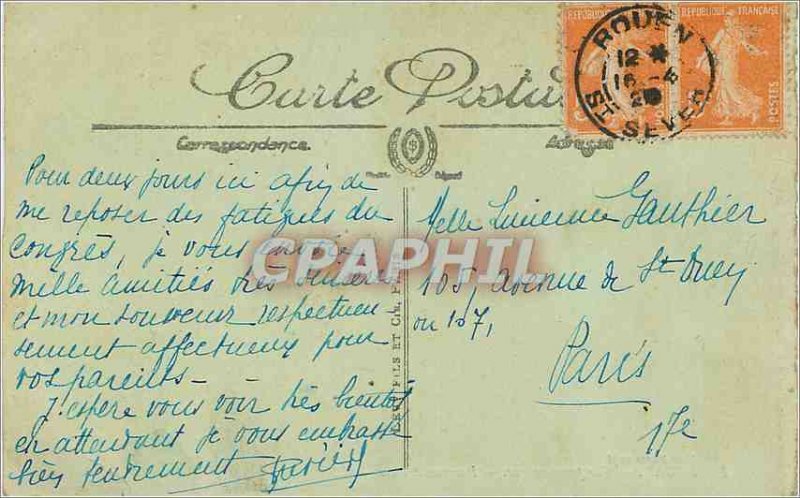 Carte Postale
Correspondance
Adresse
RÉPUBLIQUE FRANÇAISE
POSTES
ROUEN
12 *
16 - 6
ST SEVER
Pour deux jours ici afin de
me reposer des fatigues du
Congrès, je vous
mille amitiés très
et mon souvenir respectueu-
sement affectueux pour
vos parents -
J'espère vous voir très bientôt
en attendant je vous embrasse
bien tendrement
Melle Lucienne Gauthier
105, avenue de St Ouen
ou 107,
Paris
17e
FILS ET CIE
GRAPHIL